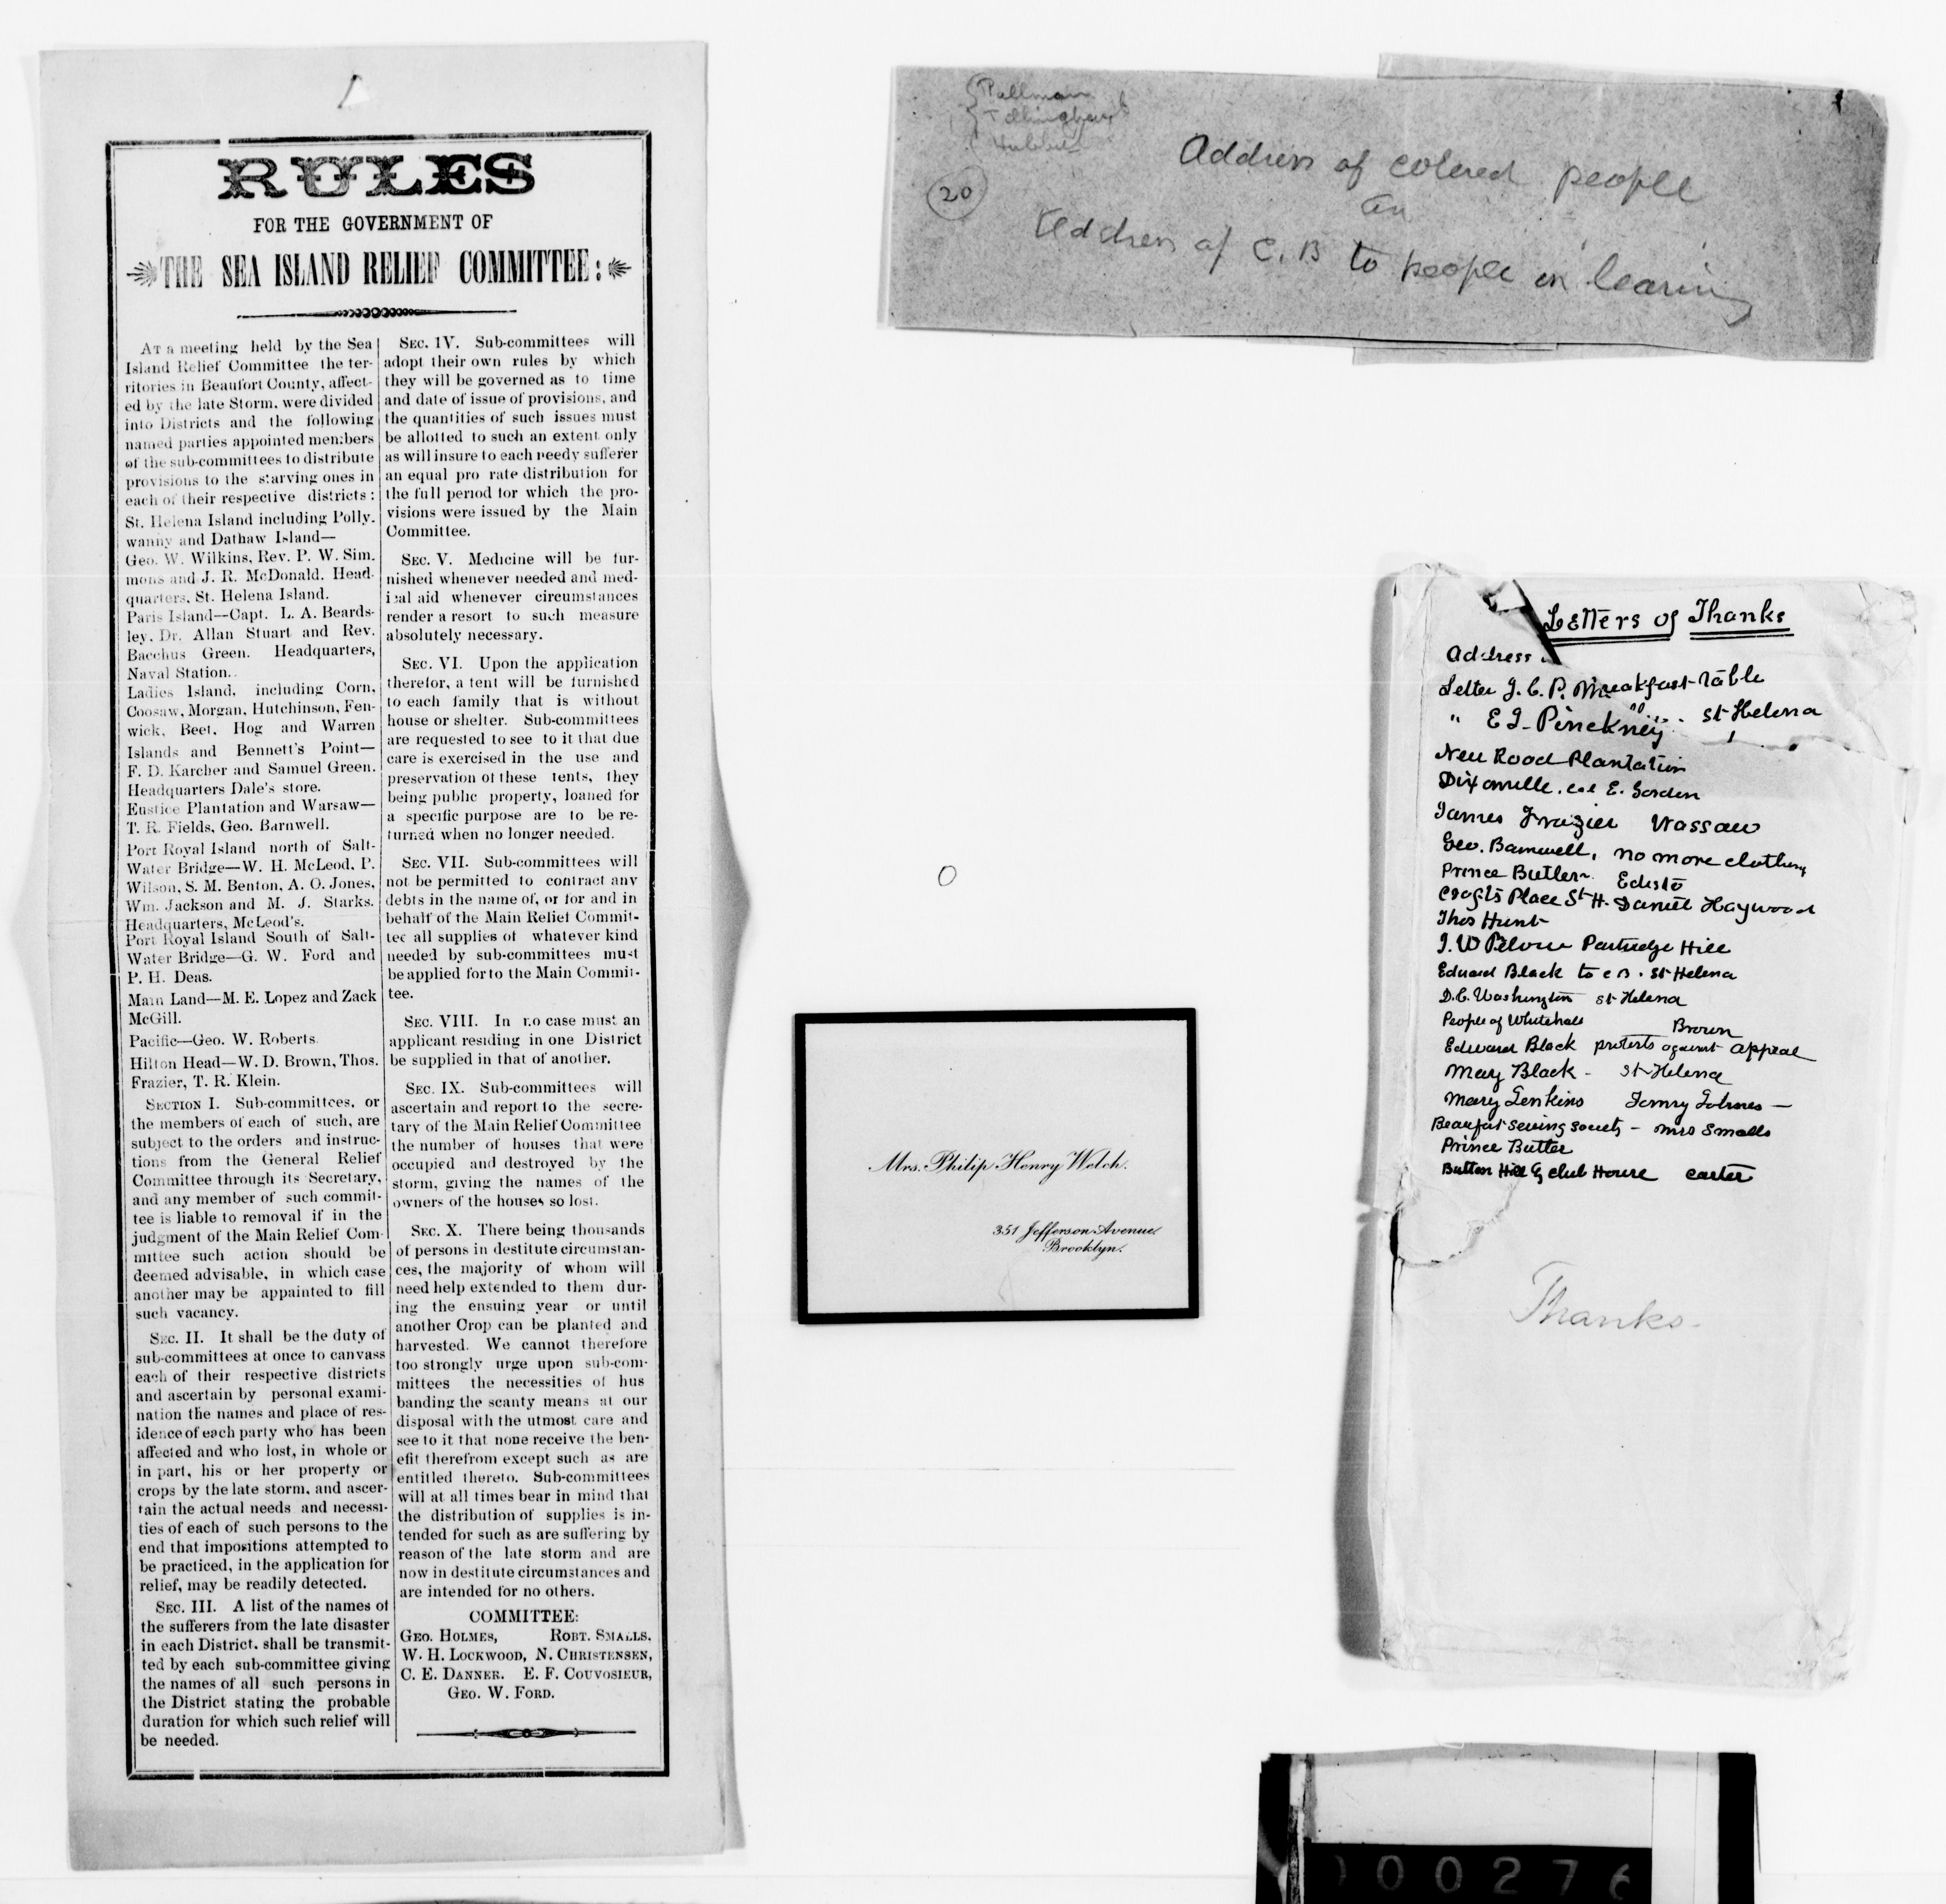 RULES
FOR THE GOVERNMENT OF
THE SEA ISLAND RELIEF COMMITTEE:
AT a meeting held by the Sea
Island Relief Committee the ter-
ritories in Beaufort County, affect-
ed by the late Storm, were divided
into Districts and the following
named parties appointed members
of the sub-committees to distribute
provisions to the starving ones in
each of their respective districts:
St. Helena Island including Polly-
wanny and Dathaw Island—
Geo. W. Wilkins, Rev. P. W. Sim-
mons and J. R. McDonald. Head-
quarters, St. Helena Island.
Paris Island—Capt. L. A. Beards-
ley, Dr. Allan Stuart and Rev.
Bacchus Green. Headquarters,
Naval Station.
Ladies Island, including Corn,
Coosaw, Morgan, Hutchinson, Fen-
wick, Beet, Hog and Warren
Islands and Bennett's Point—
F. D. Karcher and Samuel Green.
Headquarters Dale's store.
Eustice Plantation and Warsaw—
T. R. Fields, Geo. Barnwell.
Port Royal Island north of Salt-
Water Bridge—W. H. McLeod, P.
Wilson, S. M. Benton, A. O. Jones,
Wm. Jackson and M. J. Starks.
Headquarters, McLeod's.
Port Royal Island South of Salt-
Water Bridge—G. W. Ford and
P. H. Deas.
Main Land—M. E. Lopez and Zack
McGill.
Pacific—Geo. W. Roberts.
Hilton Head—W. D. Brown, Thos.
Frazier, T. R. Klein.
SECTION I. Sub-committees, or
the members of each of such, are
subject to the orders and instruc-
tions from the General Relief
Committee through its Secretary,
and any member of such commit-
tee is liable to removal if in the
judgment of the Main Relief Com-
mittee such action should be
deemed advisable, in which case
another may be appainted to fill
such vacancy.
SEC. II. It shall be the duty of
sub-committees at once to canvass
each of their respective districts
and ascertain by personal exami-
nation the names and place of res-
idence of each party who has been
affected and who lost, in whole or
in part, his or her property or
crops by the late storm, and ascer-
tain the actual needs and necessi-
ties of each of such persons to the
end that impositions attempted to
be practiced, in the application for
relief, may be readily detected.
SEC. III. A list of the names of
the sufferers from the late disaster
in each District, shall be transmit-
ted by each sub-committee giving
the names of all such persons in
the District stating the probable
duration for which such relief will
be needed.
SEC. IV. Sub-committees will
adopt their own rules by which
they will be governed as to time
and date of issue of provisions, and
the quantities of such issues must
be allotted to such an extent only
as will insure to each needy sufferer
an equal pro rate distribution for
the full period for which the pro-
visions were issued by the Main
Committee.
SEC. V. Medicine will be fur-
nished whenever needed and med-
ical aid whenever circumstances
render a resort to such measure
absolutely necessary.
SEC. VI. Upon the application
therefor, a tent will be furnished
to each family that is without
house or shelter. Sub-committees
are requested to see to it that due
care is exercised in the use and
preservation of these tents, they
being public property, loaned for
a specific purpose are to be re-
turned when no longer needed.
SEC. VII. Sub-committees will
not be permitted to contract any
debts in the name of, or for and in
behalf of the Main Relief Commit-
tee all supplies of whatever kind
needed by sub-committees must
be applied for to the Main Commit-
tee.
SEC. VIII. In no case must an
applicant residing in one District
be supplied in that of another.
SEC. IX. Sub-committees will
ascertain and report to the secre-
tary of the Main Relief Committee
the number of houses that were
occupied and destroyed by the
storm, giving the names of the
owners of the houses so lost.
SEC. X. There being thousands
of persons in destitute circumstan-
ces, the majority of whom will
need help extended to them dur-
ing the ensuing year or until
another Crop can be planted and
harvested. We cannot therefore
too strongly urge upon sub-com-
mittees the necessities of hus
banding the scanty means at our
disposal with the utmost care and
see to it that none receive the ben-
efit therefrom except such as are
entitled thereto. Sub-committees
will at all times bear in mind that
the distribution of supplies is in-
tended for such as are suffering by
reason of the late storm and are
now in destitute circumstances and
are intended for no others.
COMMITTEE:
GEO. HOLMES, ROBT. SMALLS,
W. H. LOCKWOOD, N. CHRISTENSEN,
C. E. DANNER. E. F. COUVOSIEUR,
GEO. W. FORD.
Pullman
20
Address of colered people
an
Address of C. B to people on leaving
Mrs. Philip Henry Welch.
351 Jefferson Avenue.
Brooklyn.
Letters of Thanks
Address
Letter J. C. P. Breakfast-Table
" E J- Pinckney St Helena
New Road Plantation
Dixonville. E. Gorden
James Frazier Wassaw
Geo. Barnwell, no more clothing
Prince Butler Edisto
Place St H. Daniel Haywood
Thos Hunt
J. W Partridge Hill
Edward Black to C B. St Helena
D. C. Washington St Helena
People of Whitehall Brown
Edward Black protests against appeal
Mary Black - St Helena
Mary Jenkins —
Beaufort Sewing Society - Mrs Smalls
Prince Butler
Button Hill G club House carter
Thanks-
000276